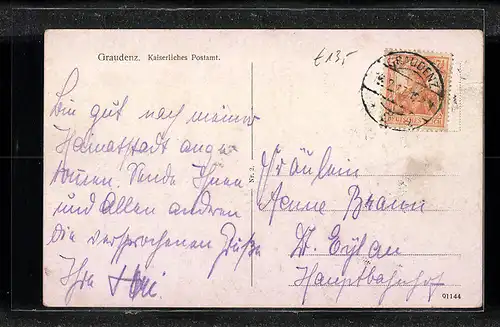 Graudenz. Kaiserliches Postamt.
€ 13,-
GRAUDENZ
7½
DEUTSCHES REICH
Bin gut nach meiner
Heimatstadt ange
kommen. Sende Ihnen
und Allen anderen
die versprochenen Grüße
Ihre
Fräulein
Anne Braun
Dt. Eylau
Hauptbahnhof
Nr. 2.
01144